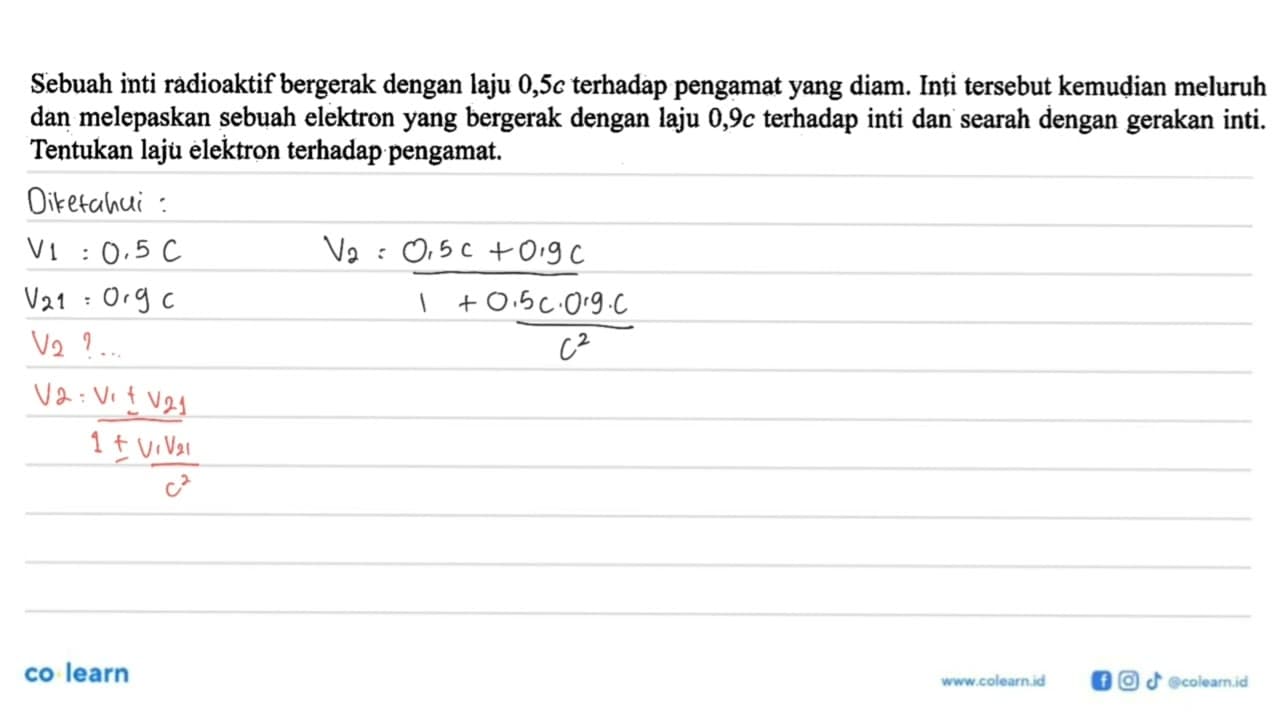 Sebuah inti radioaktif bergerak dengan laju 0,5c terhadap pengamat yang diam. Inti tersebut kemudian meluruh
dan melepaskan sebuah elektron yang bergerak dengan laju 0,9c terhadap inti dan searah dengan gerakan inti.
Tentukan laju elektron terhadap pengamat.
Diketahui :
V1 : 0,5 C
V2 = 0,5 c + 0,9 c
V21 : 0,9 c
1 + 0,5c.0,9.C
V2 ?...
c²
V2 : V1 ± V21
1 ± V1V21
c²
co learn
www.colearn.id
@colearn.id